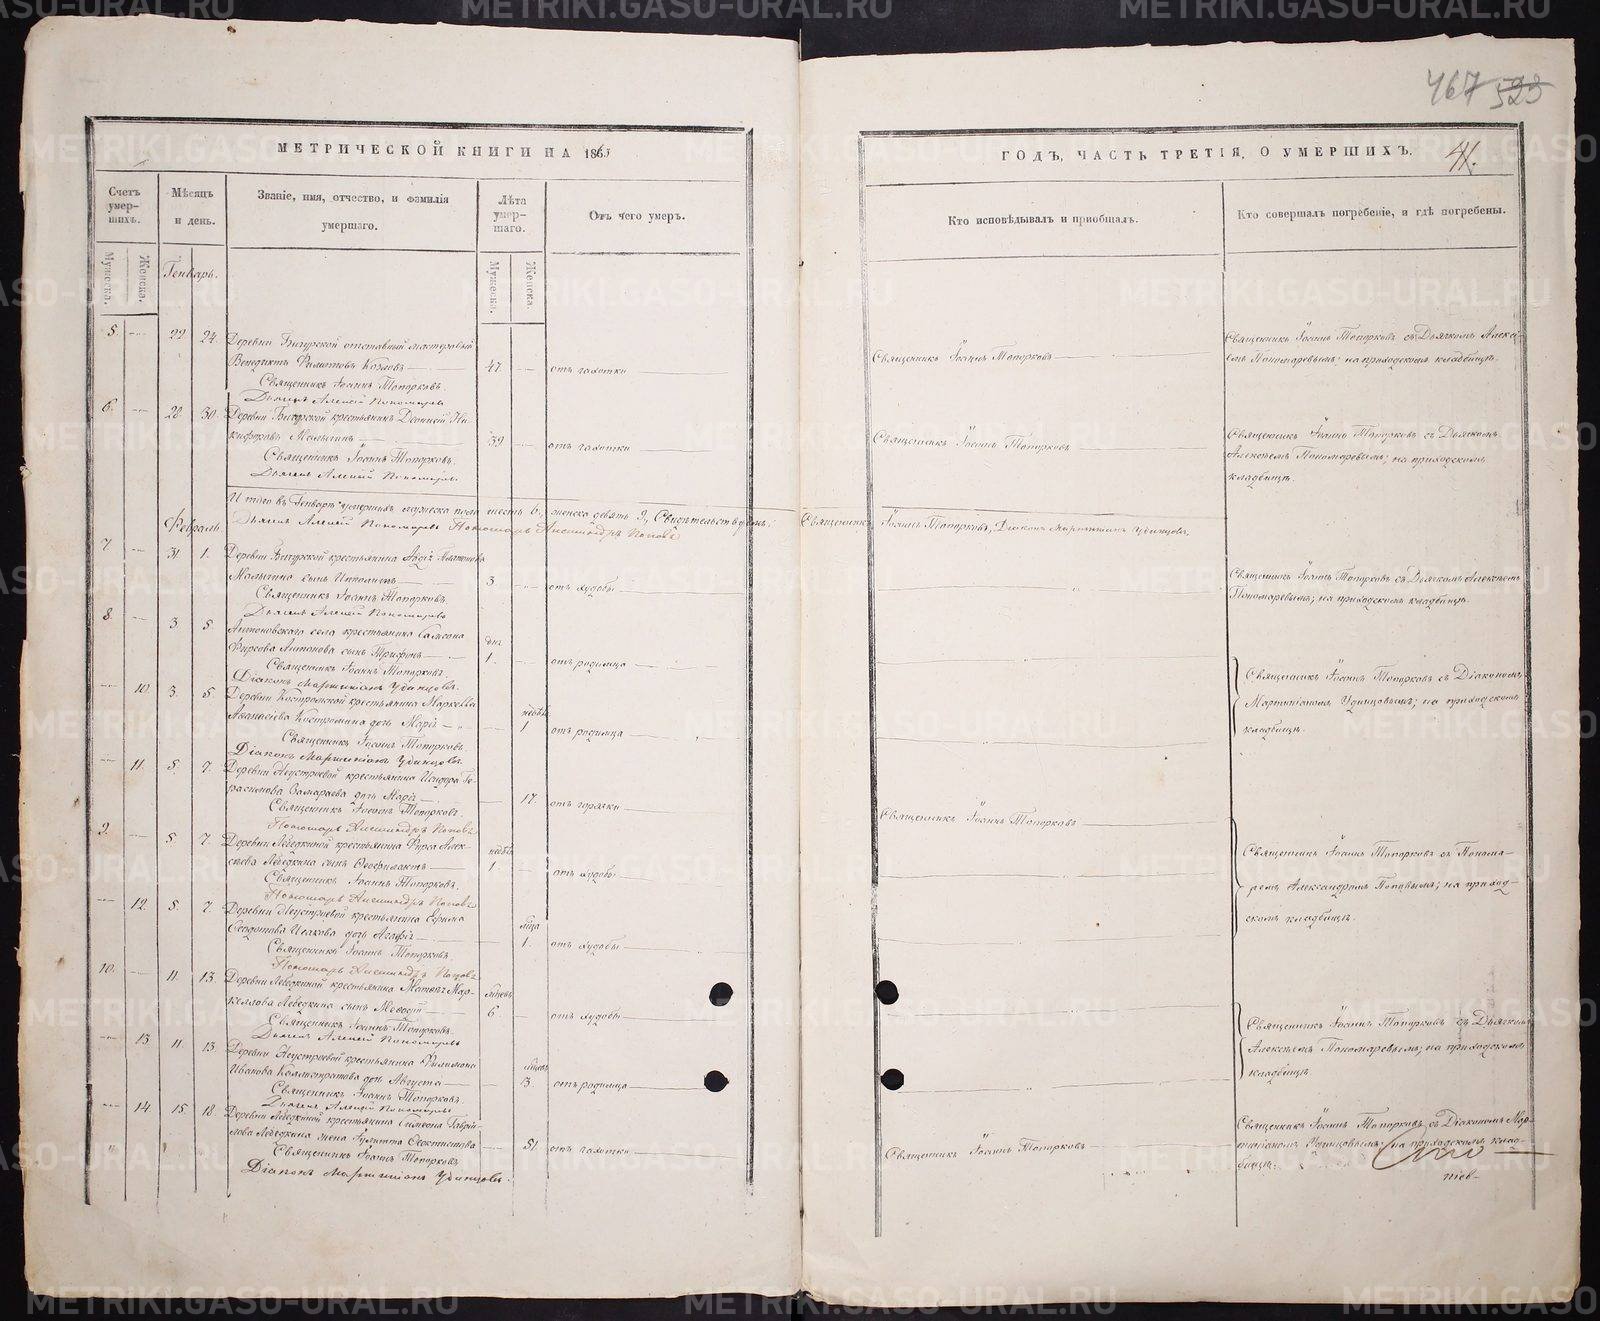 467 523
МЕТРИЧЕСКОЙ КНИГИ НА 1865
ГОДЪ, ЧАСТЬ ТРЕТІЯ, О УМЕРШИХЪ. 41.
Счетъ умер-шихъ.
Мѣсяцъ и день.
Званіе, имя, отчество, и фамилія умершаго.
Лѣта умер-шаго.
Отъ чего умеръ.
Кто исповѣдывалъ и пріобщалъ.
Кто совершалъ погребеніе, и гдѣ погребены.
Мужеска. Женска.
Мужеска. Женска.
Генварь.
5. 22 24. Деревни отставный мастеровый
Венедиктъ Филиповъ Козловъ 47. отъ чахотки
Священникъ Іоаннъ Топорковъ
Священникъ Іоаннъ Топорковъ съ Дьячкомъ Алексѣ-
емъ Пономаревымъ; на приходскомъ кладбищѣ.
Священникъ Іоаннъ Топорковъ.
Дьячекъ Алексій Пономаревъ
6. 28. 30. Деревни крестьянинъ Діонисій Ни-
кифоровъ Малыгинъ 39 отъ чахотки
Священникъ Іоаннъ Топорковъ
Священникъ Іоаннъ Топорковъ съ Дьячкомъ
Алексѣемъ Пономаревымъ; на приходскомъ
кладбищѣ.
Священникъ Іоаннъ Топорковъ.
Дьячекъ Алексій Пономаревъ
Итого въ Генварѣ умершихъ мужеска пола шесть 6, женска девять 9.
Священникъ Іоаннъ Топорковъ, Діаконъ Мартиніанъ Удинцовъ,
Дьячекъ Алексій Пономаревъ Пономарь Александръ Поповъ
Февраль.
7. 31. 1. Деревни крестьянина
Малыгина сынъ Ипполитъ 3. отъ худобы
Священникъ Іоаннъ Топорковъ съ Дьячкомъ Алексѣемъ
Пономаревымъ; на приходскомъ кладбищѣ.
Священникъ Іоаннъ Топорковъ
Дьячекъ Алексій Пономаревъ
8. 3. 5. Антоновскаго села крестьянина Самсона
Фирсова Антонова сынъ Трифонъ 1. отъ родимца
Священникъ Іоаннъ Топорковъ.
Діаконъ Мартиніанъ Удинцовъ.
10. 3. 5. Деревни Костромской крестьянина
Аѳанасіева Костромина дочь Марія 1 отъ родимца
Священникъ Іоаннъ Топорковъ съ Діакономъ
Мартиніаномъ Удинцовымъ; на приходскомъ
кладбищѣ.
Священникъ Іоаннъ Топорковъ
Діаконъ Мартиніанъ Удинцовъ
11. 5. 7. Деревни Неустроевой крестьянина Исидора Ге-
расимова дочь Марія 17. отъ горячки
Священникъ Іоаннъ Топорковъ
Священникъ Іоаннъ Топорковъ.
Пономарь Александръ Поповъ
9. 5. 7. Деревни Лебедкиной крестьянина Фирса Алек-
сѣева Лебедкина сынъ Ѳеофилактъ 1. отъ худобы
Священникъ Іоаннъ Топорковъ съ Понома-
ремъ Александромъ Поповымъ; на приход-
скомъ кладбищѣ.
Священникъ Іоаннъ Топорковъ.
Пономарь Александръ Поповъ
12. 5. 7. Деревни Неустроевой крестьянина Ефима
дочь Агафія 1. отъ худобы
Священникъ Іоаннъ Топорковъ.
Пономарь Александръ Поповъ
10. 11. 13. Деревни Лебедкиной крестьянина Мар-
келлова Лебедкина сынъ Меѳодій 6 отъ худобы
Священникъ Іоаннъ Топорковъ.
Дьячекъ Алексій Пономаревъ
13. 11. 13. Деревни Неустроевой крестьянина Филимона
Иванова Каллистратова дочь Августа 3. отъ родимца
Священникъ Іоаннъ Топорковъ съ Дьячкомъ
Алексѣемъ Пономаревымъ; на приходскомъ
кладбищѣ
Священникъ Іоаннъ Топорковъ.
Дьячекъ Алексій Пономаревъ
14. 15. 18. Деревни Лебедкиной крестьянина Симеона Гаврі-
лова Лебедкина жена Іулитта Ѳеоктистова 51. отъ чахотки
Священникъ Іоаннъ Топорковъ
Священникъ Іоаннъ Топорковъ съ Діакономъ Мар-
тиніаномъ Удинцовымъ; на приходскомъ клад-
бищѣ.
Священникъ Іоаннъ Топорковъ
Діаконъ Мартиніанъ Удинцовъ.
METRIKI.GASO-URAL.RU